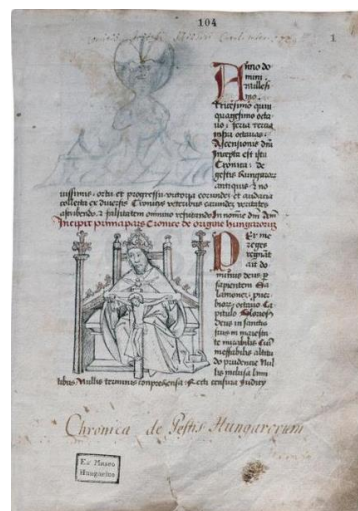 104
1
Anno do
mini
millesi
mo
tricesimo quin
quagesimo octa
uo . feria tercia
infra octauas .
Ascensionis dni
Incepta est ista
Cronica . de
gestis hungaror
antiquis & no
uissimis . ortu et progressu victoria eorundem et audacia
collecta ex diuersis Cronicis veteribus earundem veritates
ascribendo . & falsitatem omnino refutando In nomine dni
Incipit prima pars Cronice de origine hungarorum
Per me
reges
regnat
ait do
minus deus p
sapientem Sa
lamonem . puer
biorum octauo Ca
pitulo Gloriosus
deus in sanctis
suis in maiesta
te mirabilis Cuius
ineffabilis altitu
do prudentie Nul
lis inclusa limi
tibus Nullis terminis conprehensa Recti censura
Chronica de Gestis Hungarorum
Ex Museo
Hungarico